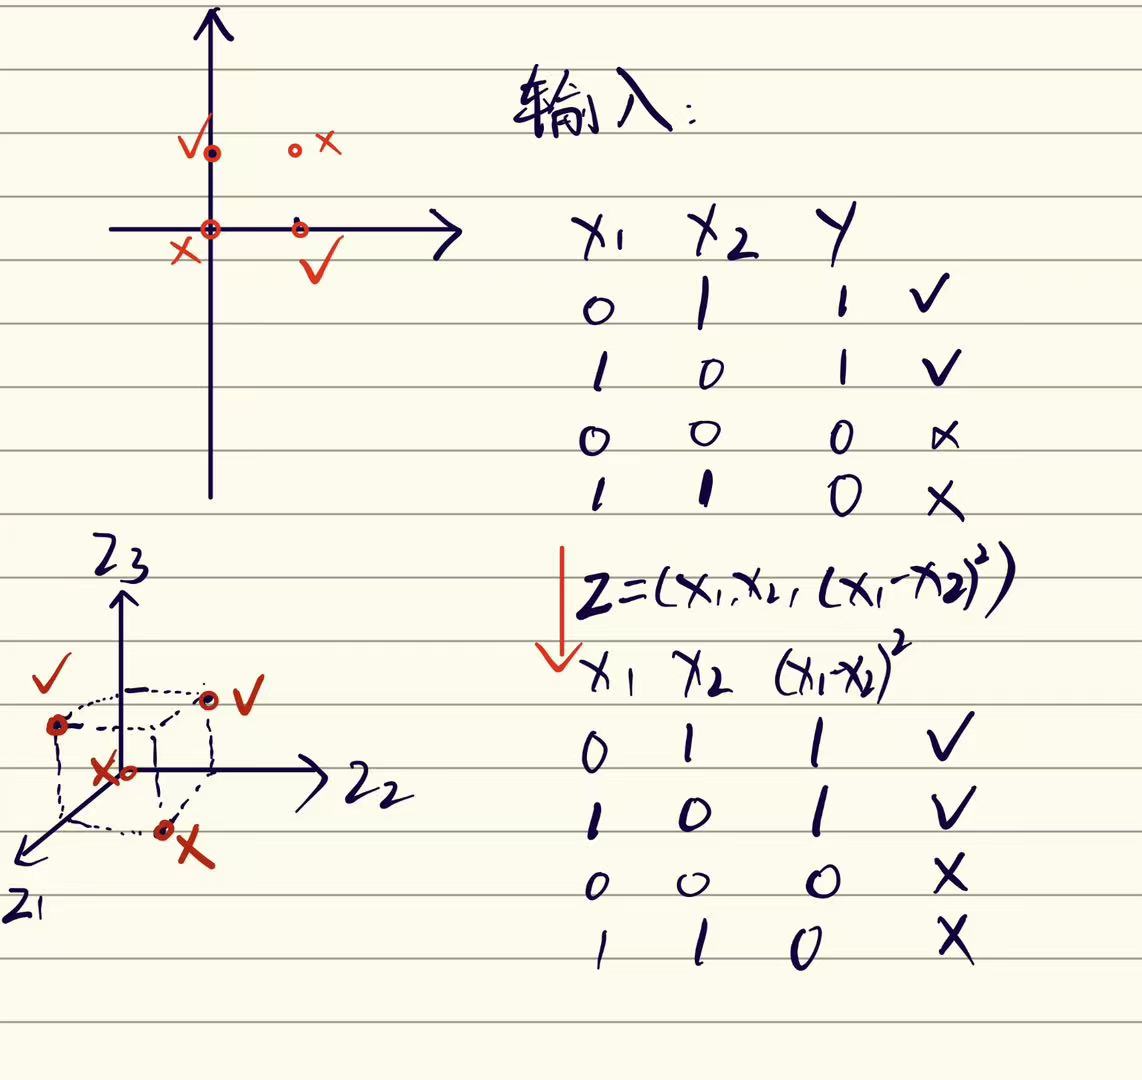 输入:
X₁ X₂ Y
0 1 1 ✓
1 0 1 ✓
0 0 0 ×
1 1 0 ×
Z=(X₁,X₂,(X₁-X₂)²)
X₁ X₂ (X₁-X₂)²
0 1 1 ✓
1 0 1 ✓
0 0 0 ×
1 1 0 ×
✓ ×
× ✓
Z₃
✓ ✓
×
Z₂
×
Z₁